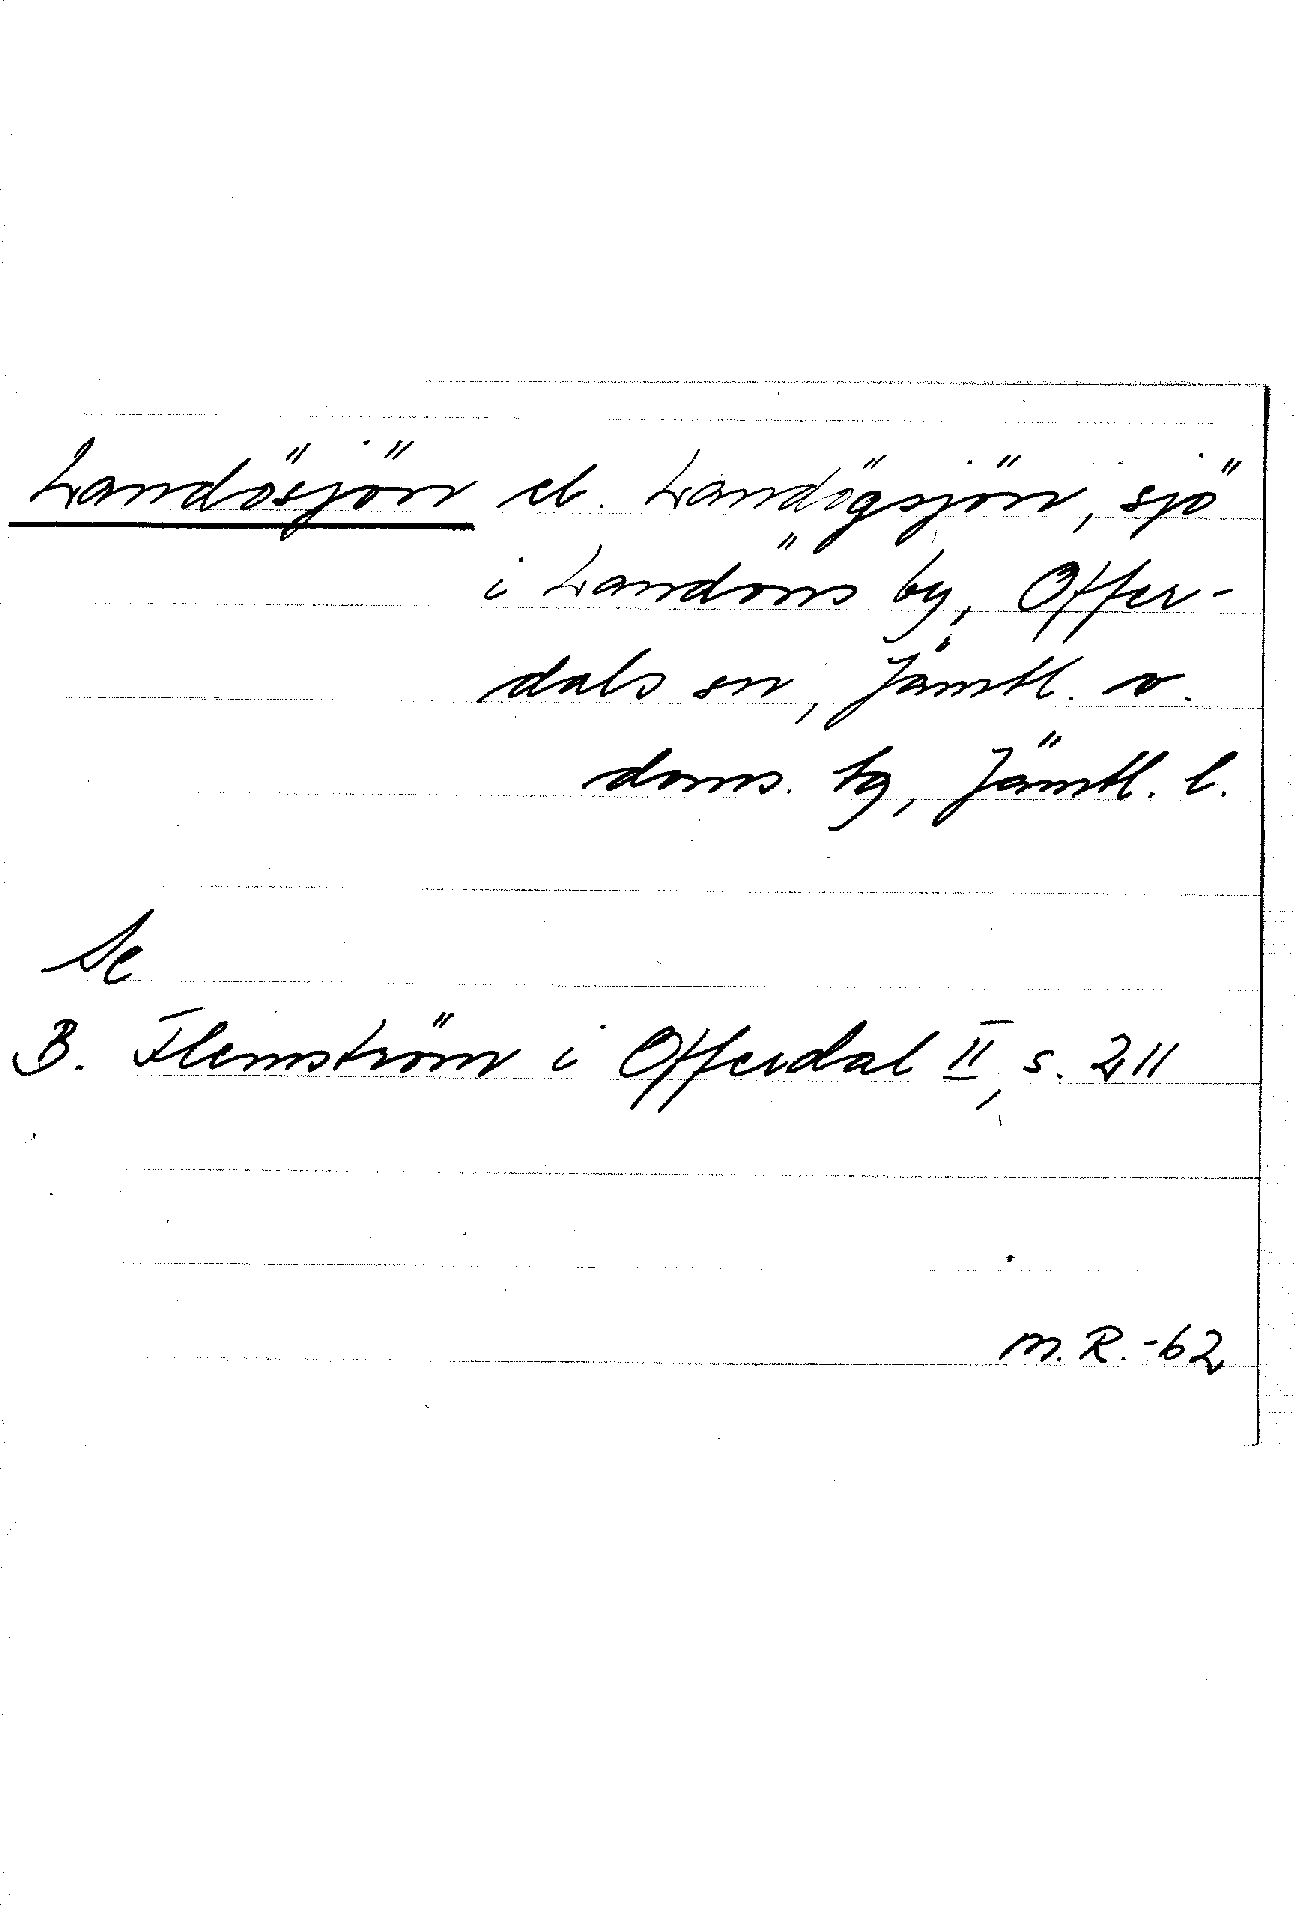 Landösjön el. Landögsjön, sjö
i Landöns by, Offer-
dals sn, Jämtl. v.
doms. tg, Jämtl. l.
Se
B. Flemström i Offerdal II, s. 211
M. R. -62